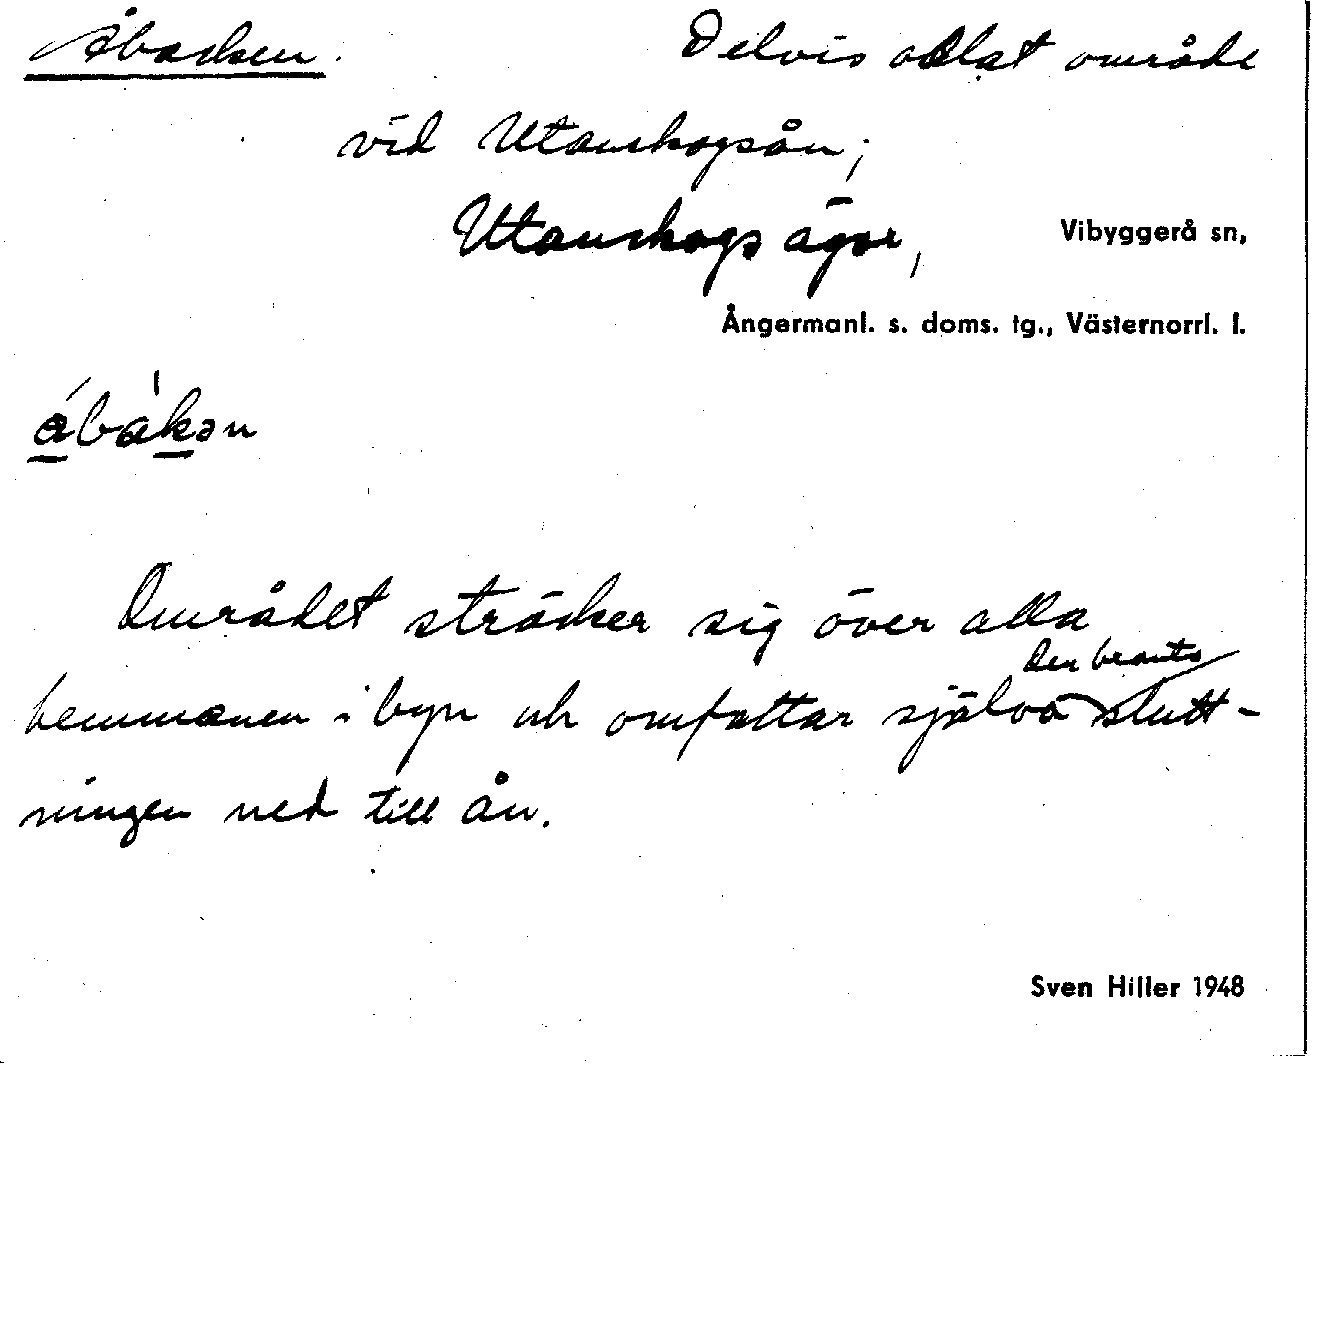 Åbacken. Delvis odlat område
vid Utanskogsån;
Utanskogs ägor, Vibyggerå sn,
Ångermanl. s. doms. tg., Västernorrl. l.
Området sträcker sig över alla
hemmanen i byn och omfattar själva den branta slutt-
ningen ned till ån.
Sven Hiller 1948